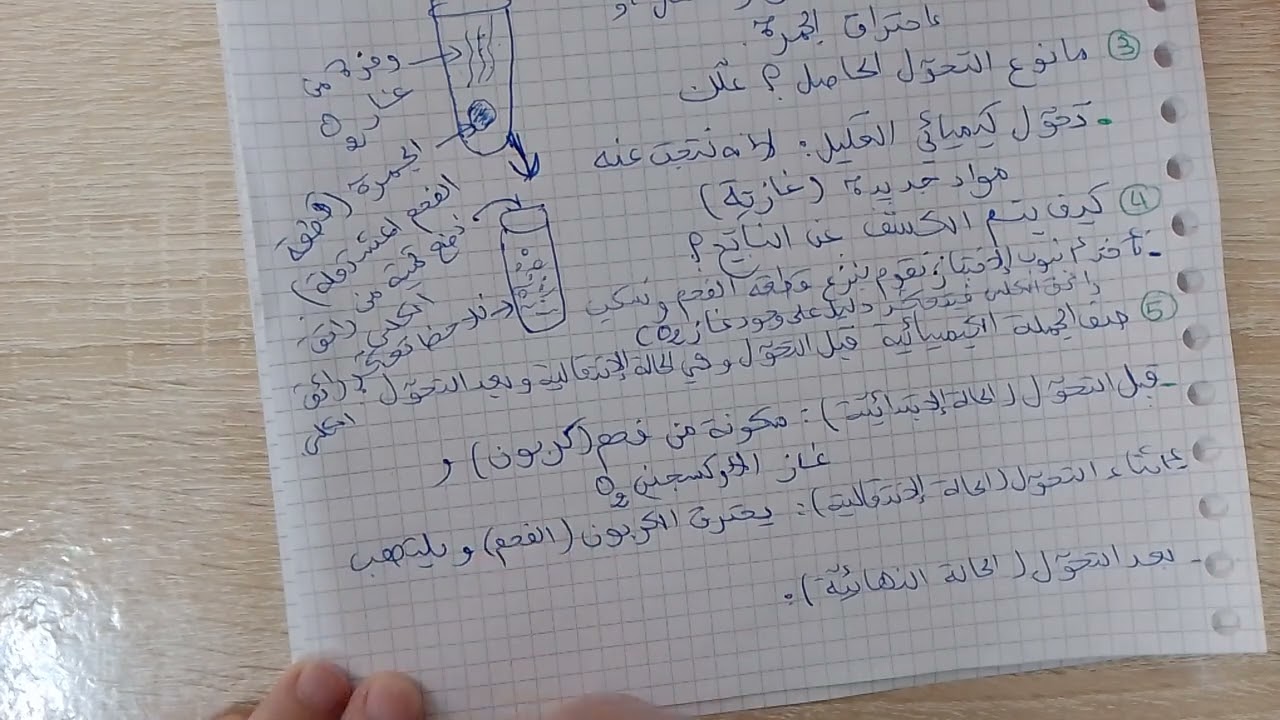 احتراق الجمرة.
③ ما نوع التحوّل الحاصل؟ علّل
- تحوّل كيميائي التعليل: لأنه نتجت عنه
مواد جديدة (غازية)
④ كيف يتم الكشف عن الناتج؟
نقوم بنزع قطعة الفحم و نسكب
رائق الكلس فيتعكر دليل على وجود غاز CO2
⑤ صف الجملة الكيميائية قبل التحوّل و في الحالة الإنتقالية و بعد التحوّل؟
- قبل التحوّل (الحالة الإبتدائية): مكونة من فحم (كربون) و
غاز الأوكسجين O2
أثناء التحوّل (الحالة الإنتقالية): يحترق الكربون (الفحم) و يلتهب
- بعد التحوّل (الحالة النهائية):
وفرة من
غاز
O2
الجمرة (قطعة
الفحم المشتعلة)
كمية من رائق
الكلس
رائق
الكلس